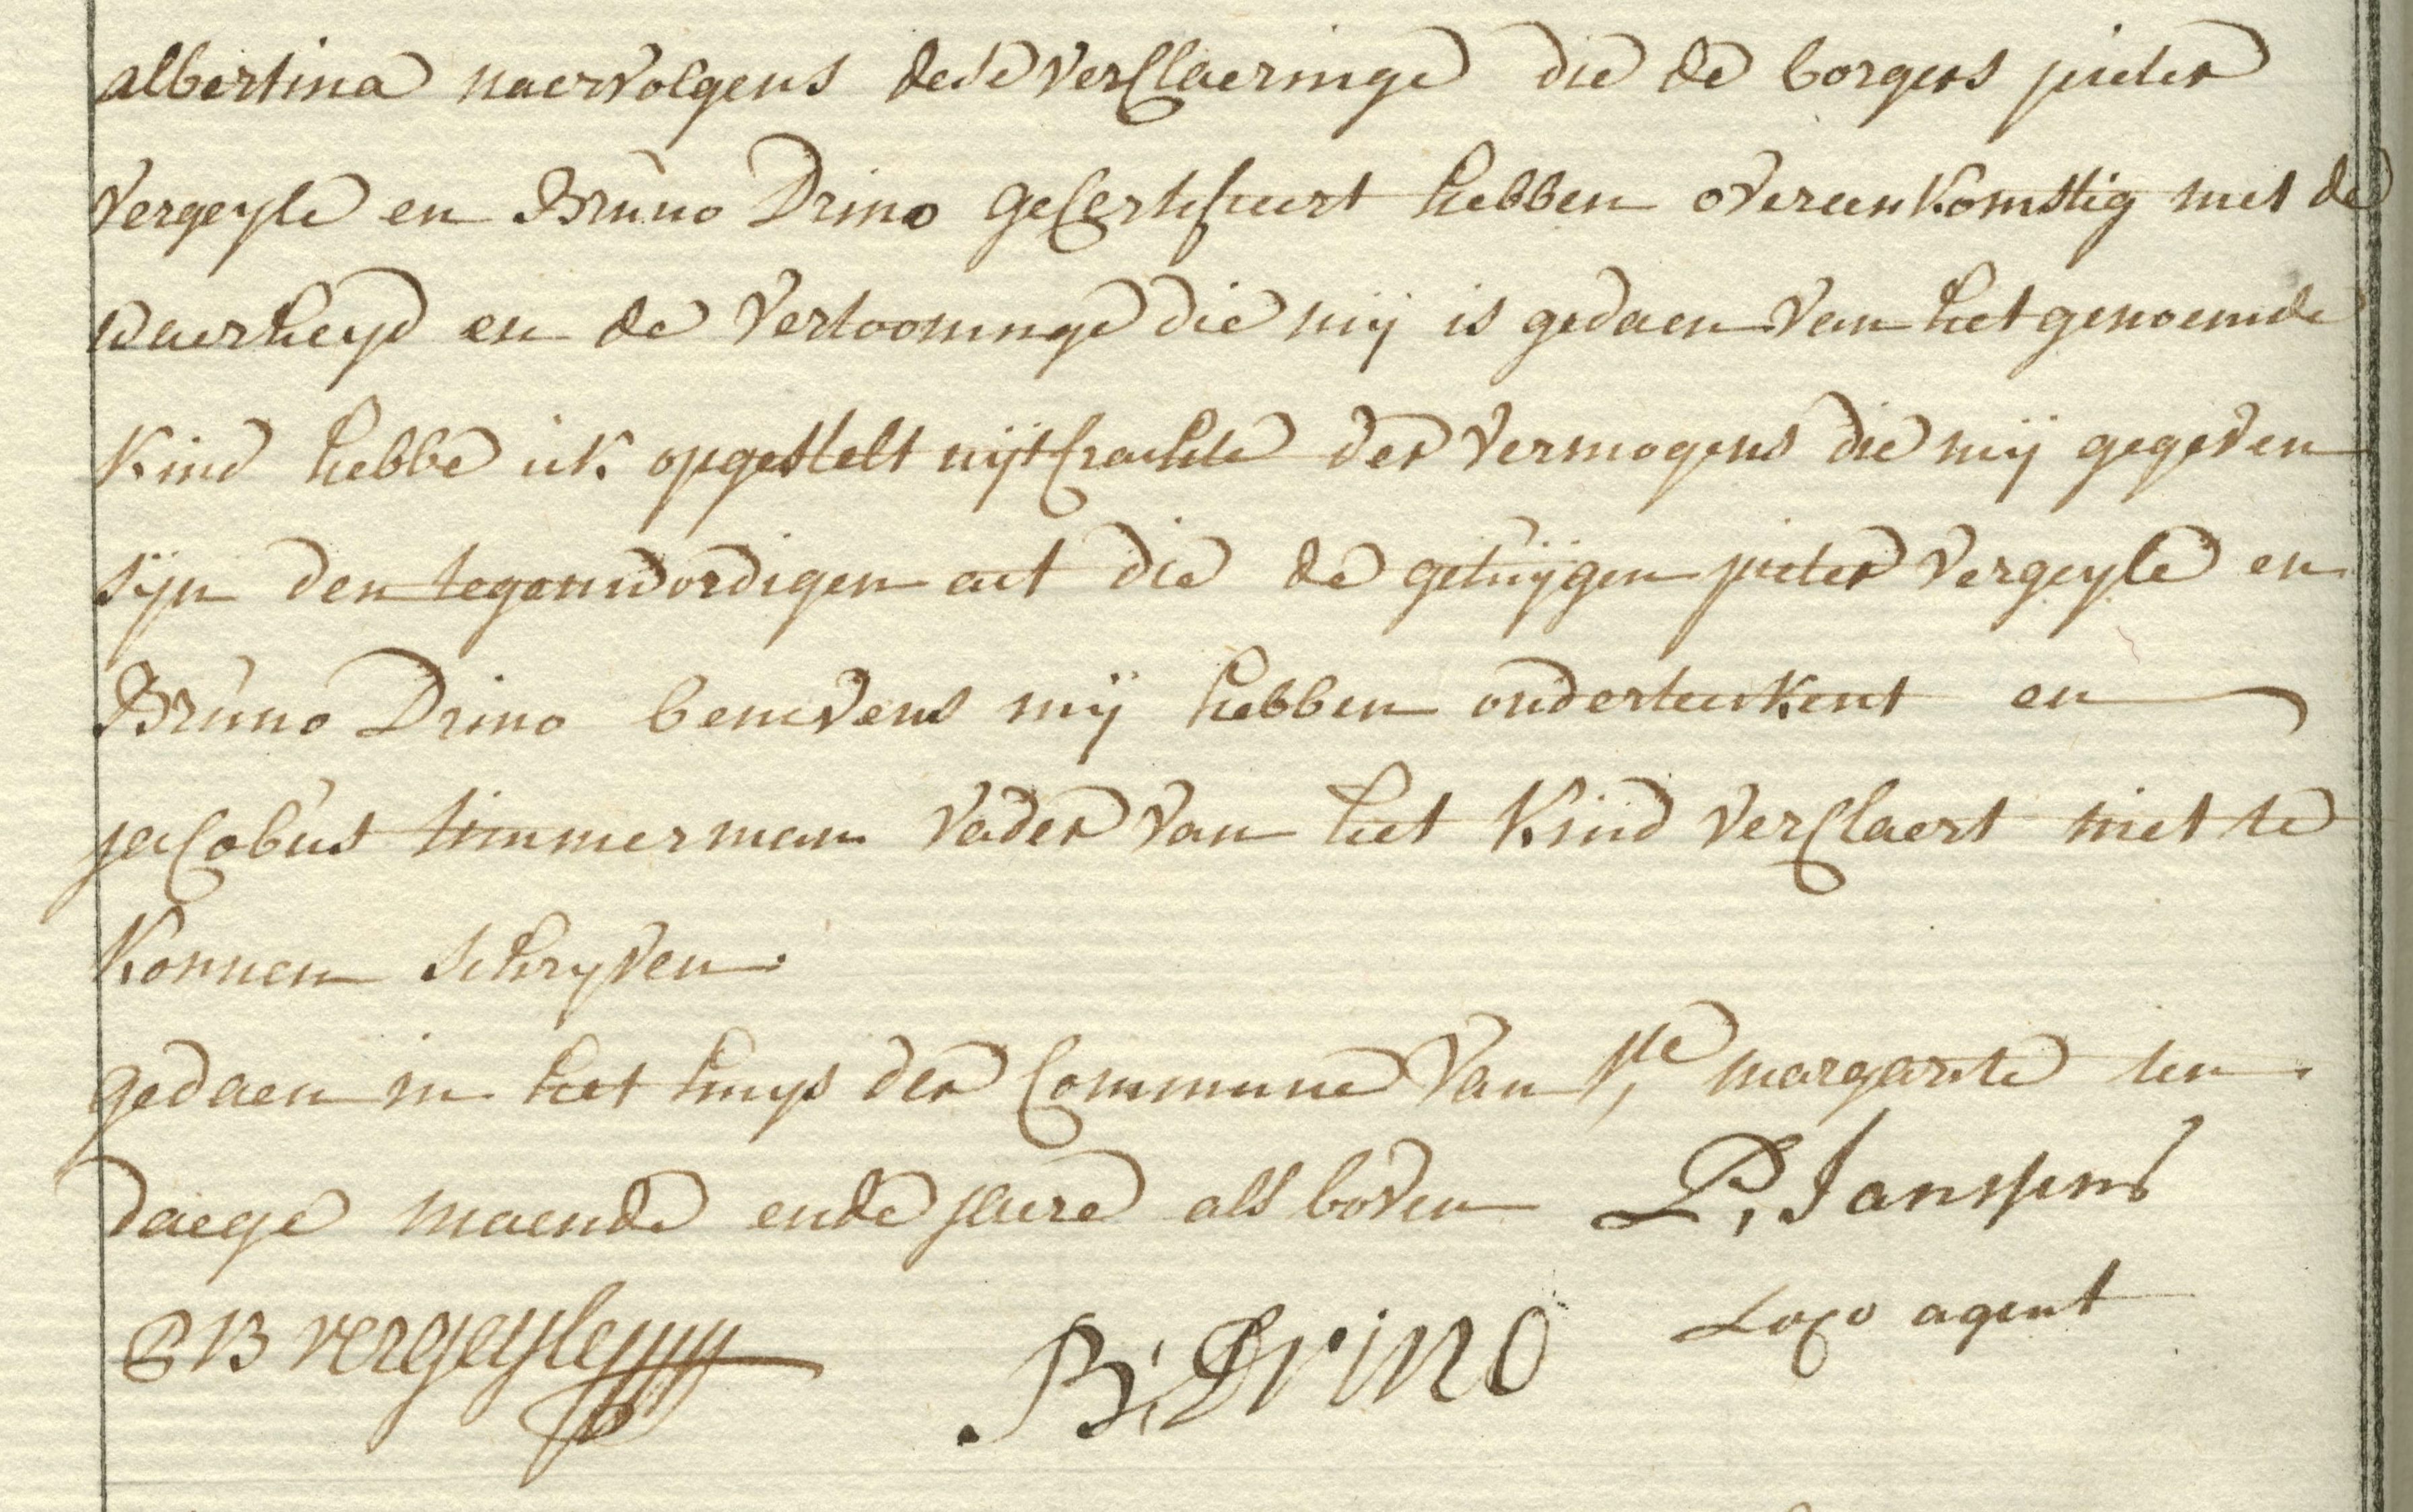 albertina naervolgens dese verclaeringe die de borgers pieter
vergeyle en Bruno Drino gecertificeert hebben overeenkomstig met de
waerheyd en de vertooninge die mij is gedaen van het genoemde
kind hebbe ick opgestelt uijt crachte der vermogens die mij gegeven
sijn den tegenwordigen act die de getuijgen pieter vergeyle en
Bruno Drino benevens mij hebben onderteekent en
jacobus timmerman vader van het kind verclaert niet te
konnen schryven
gedaen in het huys der Commune van Ste margarite ten
daege maende ende jaere als boven P, Janssens
PB vergeyle B; Drino Loco agent